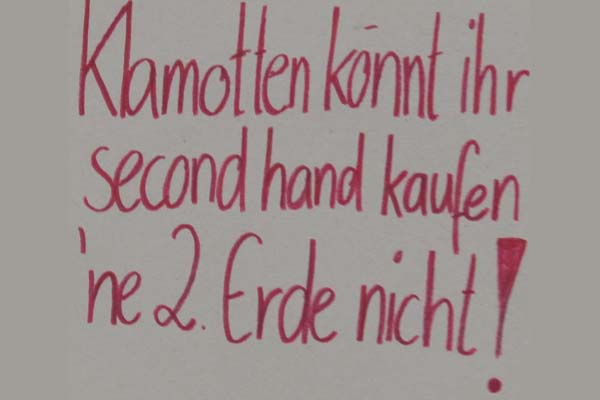 Klamotten könnt ihr
second hand kaufen
'ne 2. Erde nicht!